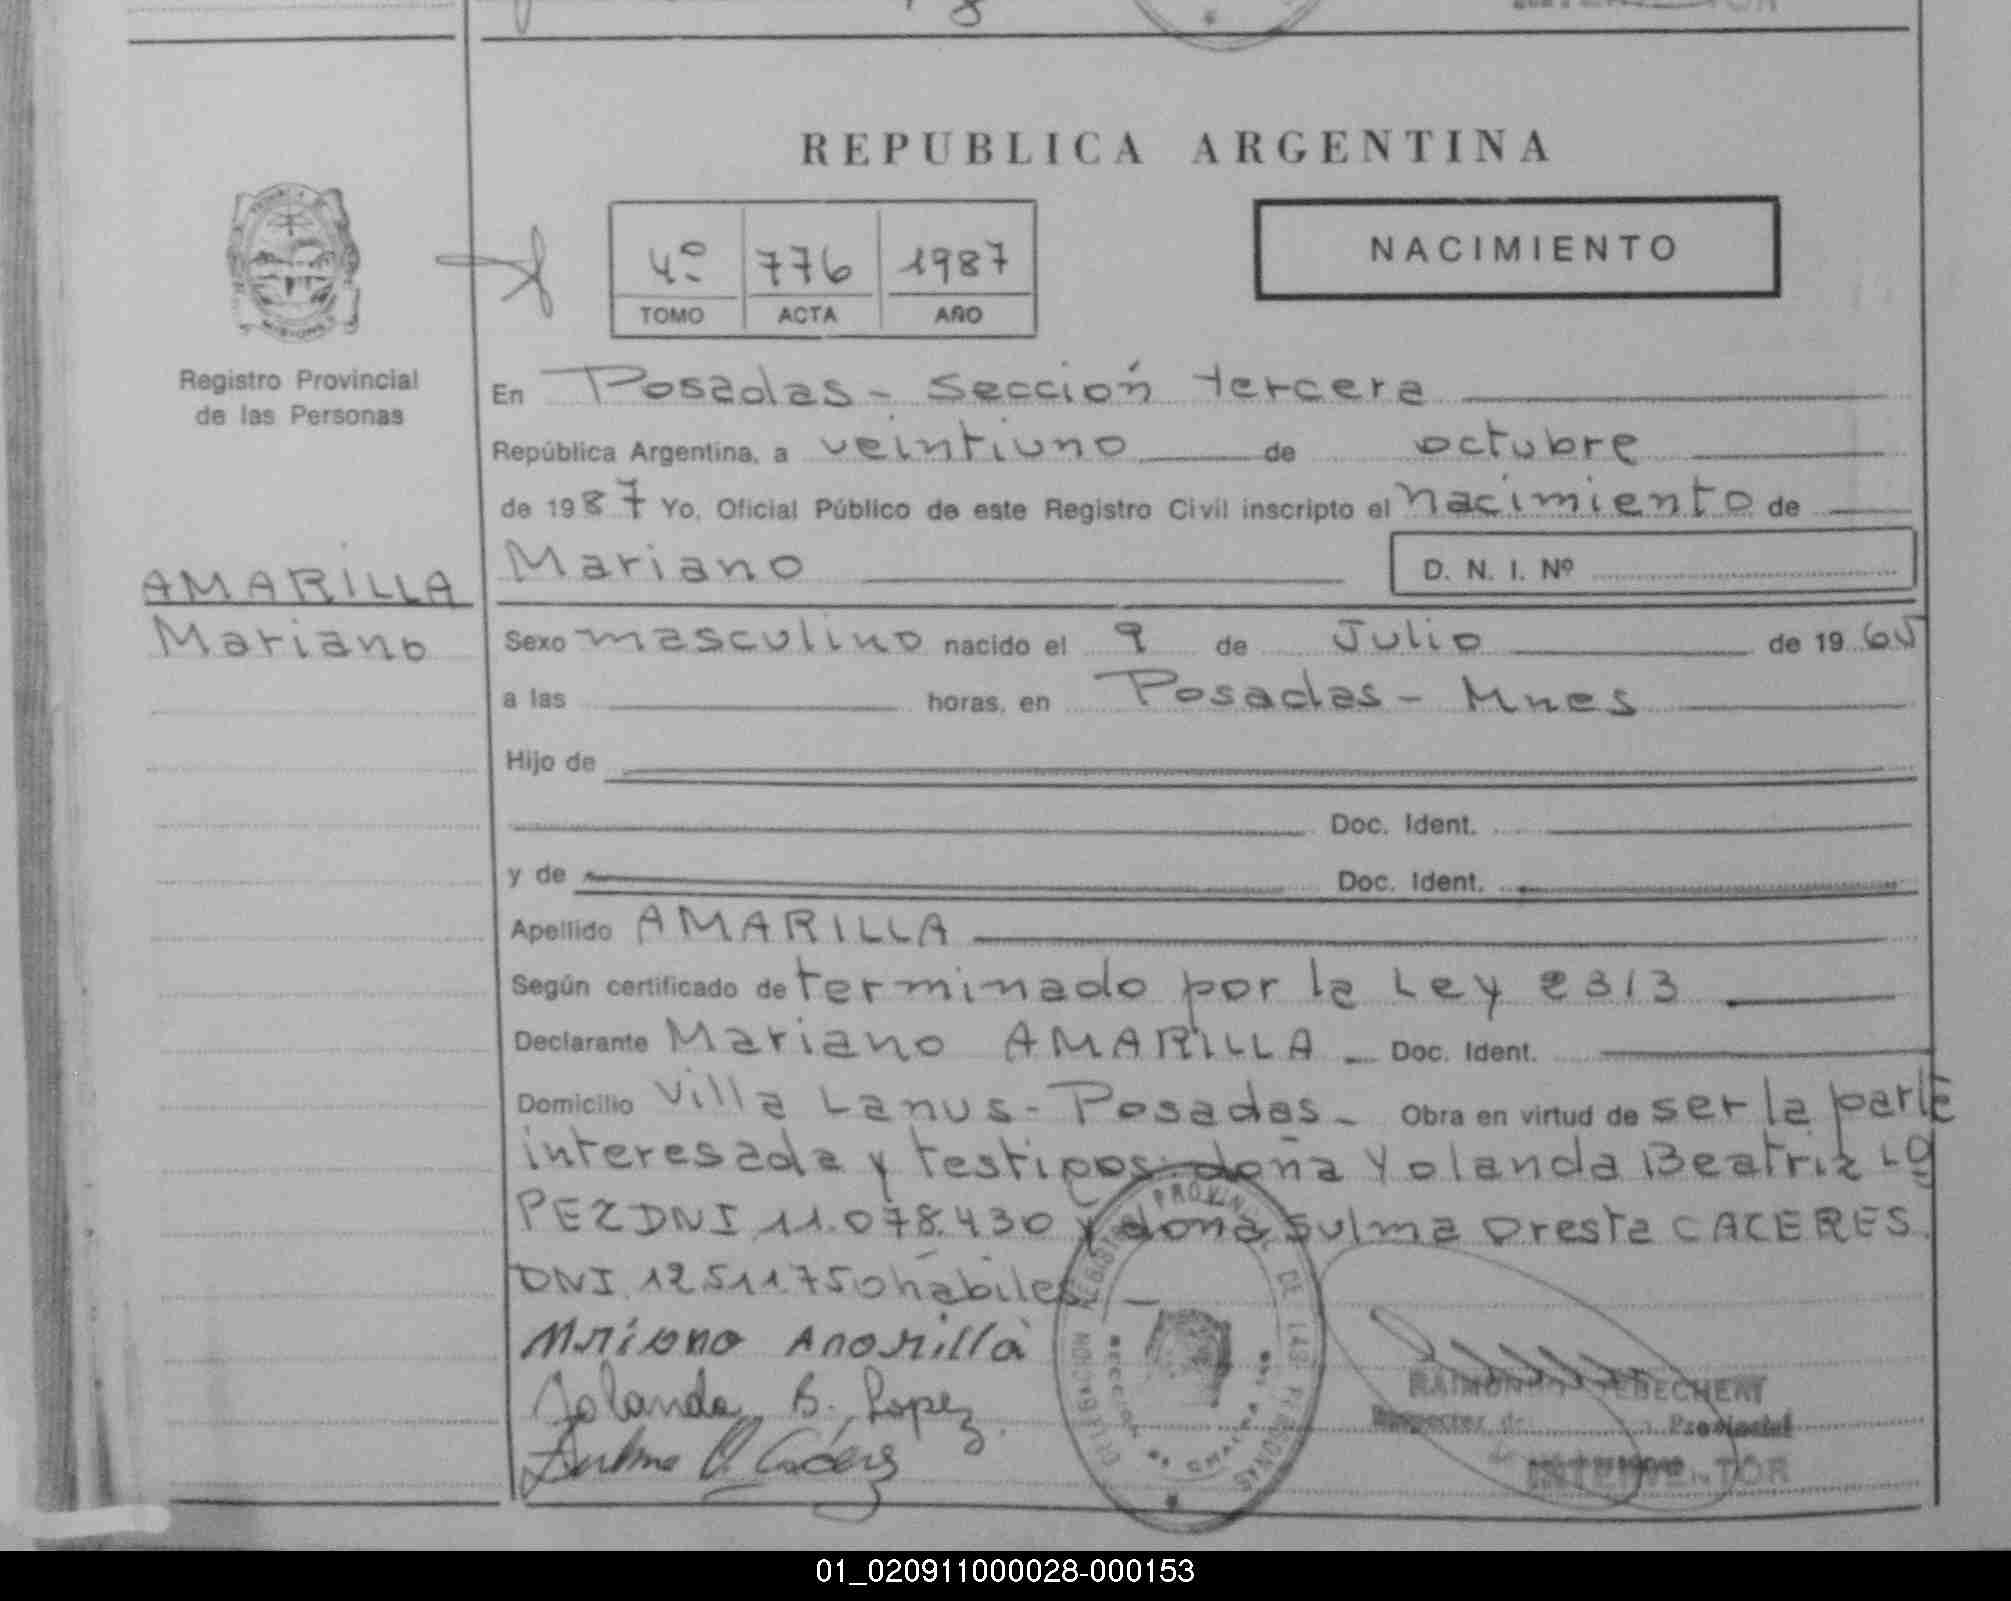 REPUBLICA ARGENTINA
NACIMIENTO
4º 776 1987
TOMO ACTA AÑO
Registro Provincial
de las Personas
AMARILLA
Mariano
En Posadas - Sección tercera
República Argentina, a veintiuno de octubre
de 1987 Yo, Oficial Público de este Registro Civil inscripto el nacimiento de
Mariano D. N. I. Nº
Sexo masculino nacido el 9 de Julio de 1965
a las horas, en Posadas - Mnes
Hijo de
Doc. Ident.
y de Doc. Ident.
Apellido AMARILLA
Según certificado determinado por la Ley 2313
Declarante Mariano AMARILLA - Doc. Ident.
Domicilio Villa Lanus - Posadas - Obra en virtud de ser la parte
interesada y testigos: doña Yolanda Beatriz LO
PEZ DNI 11.078.430 y doña Sulma Oresta CACERES
DNI 12511750 habiles -
Mriono Anorilla
Yolanda B. Lopez
Sulma O. Cáceres
REGISTRO PROVINCIAL DE LAS PERSONAS
DELEGACION
RAIMUNDO
Inspector de Provincial
INTERVENTOR
01_020911000028-000153